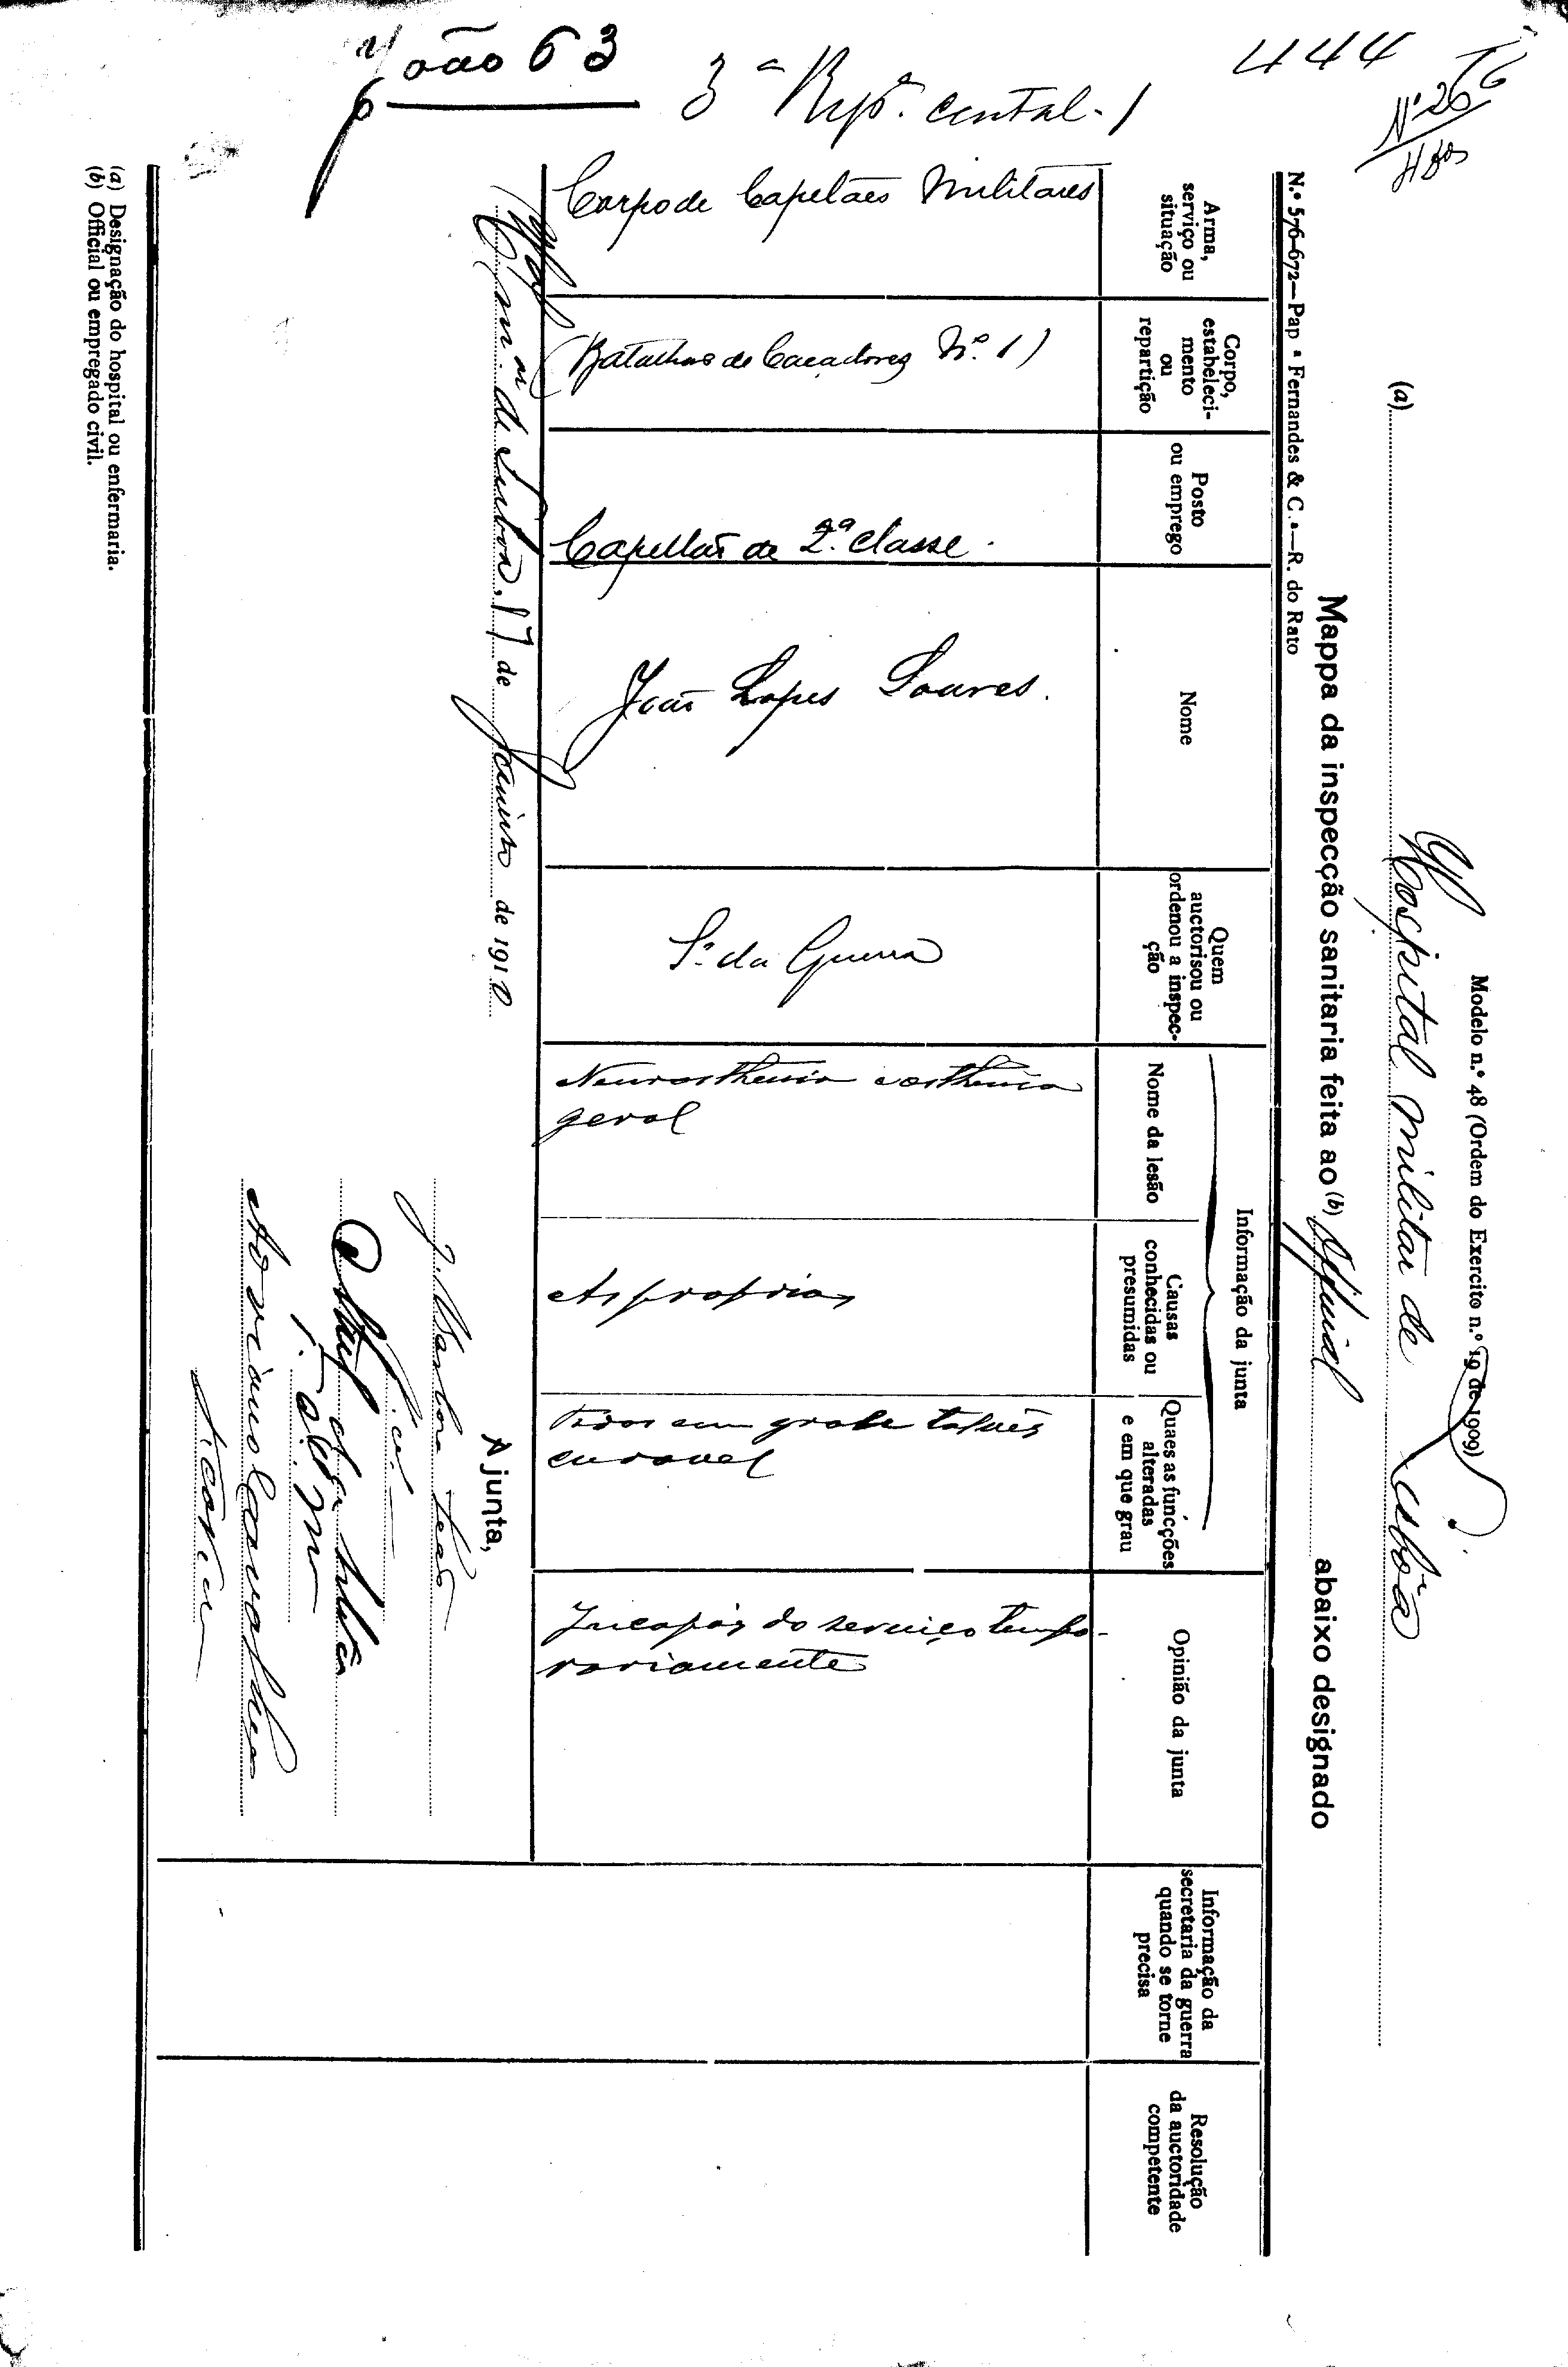 João 63
3ª Repª. central - 1
444
Nº 26
Modelo n.º 48 (Ordem do Exercito n.º 19 de 1909)
(a) Hospital militar de Lisbôa
Mappa da inspecção sanitaria feita ao (b) Official abaixo designado
N.º 576-672—Pap ª Fernandes & C.ª—R. do Rato
Arma,
serviço ou
situação
Corpo de Capelães Militares
Corpo,
estabeleci-
mento
ou
repartição
(Batalhão de Caçadores Nº. 1)
Posto
ou emprego
Capellão de 2.ª classe.
Nome
João Lopes Soares.
Quem
auctorisou ou
ordenou a inspec-
ção
Sª da Guerra
Informação da junta
Nome da lesão
Neurasthenia e asthenia
geral
Causas
conhecidas ou
presumidas
As proprias
Quaes as funcções
alteradas
e em que grau
Todas em grau talvez
curavel
Opinião da junta
Incapaz do serviço tempo-
rariamente
Informação da
secretaria da guerra
quando se torne
precisa
Resolução
da auctoridade
competente
de Lisbôa, 17 de Janeiro de 1910
A junta,
J. Barbosa Leão
Adriano Carvalho
(a) Designação do hospital ou enfermaria.
(b) Official ou empregado civil.